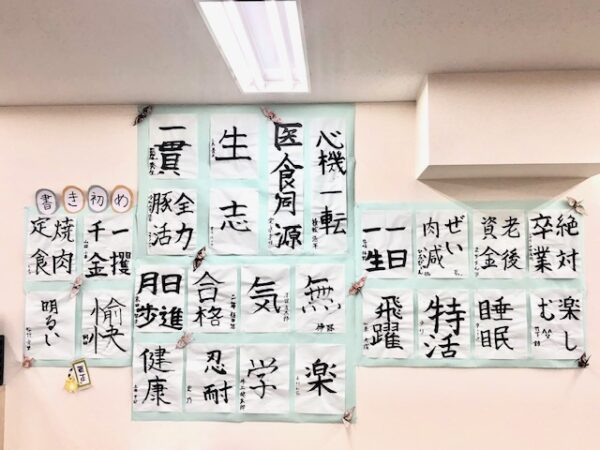 書き初め
焼肉
定食
一攫
千金
明るい
愉快
一貫
生
医食同源
心機一転
全力
豚活
志
日進
月歩
合格
気
無
健康
忍耐
学
楽
一日
一生
ぜい
肉減
老後
資金
絶対
卒業
飛躍
特活
睡眠
楽し
む